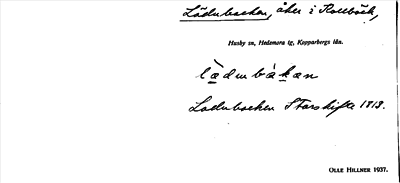 Lädubacken, åker i Rollbäck,
Husby sn, Hedemora tg, Kopparbergs län.
Ladubacken Storskifte 1818.
OLLE HILLNER 1937.